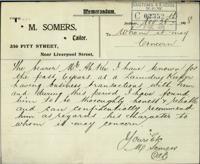 Memorandum.
M. SOMERS,
Tailor.
350 PITT STREET,
Near Liverpool Street.
To whom it may
Concern
The bearer Mr. I have known for
the past 6 years, as a Laundry Keeper
having business transactions with him
and during this period I have found
him to be thoroughly honest & reliable
and can confidently recommend
him as regards his character to
whom it may concern
Yours
M Somers